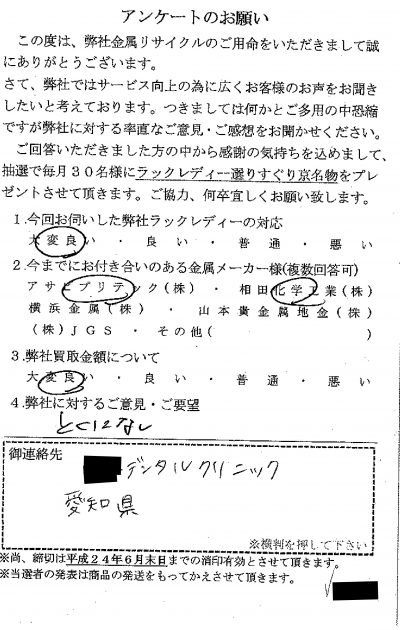 アンケートのお願い
この度は、弊社金属リサイクルのご用命をいただきまして誠
にありがとうございます。
さて、弊社ではサービス向上の為に広くお客様のお声をお聞き
したいと考えております。つきましては何かとご多用の中恐縮
ですが弊社に対する率直なご意見・ご感想をお聞かせください。
ご回答いただきました方の中から感謝の気持ちを込めまして、
抽選で毎月30名様にラックレディー選りすぐり京名物をプレ
ゼントさせて頂きます。ご協力、何卒宜しくお願い致します。
1.今回お伺いした弊社ラックレディーの対応
大変良い・良い・普通・悪い
2.今までにお付き合いのある金属メーカー様(複数回答可)
アサヒプリテック(株)・相田化学工業(株)
横浜金属(株)・山本貴金属地金(株)
(株)JGS・その他( )
3.弊社買取金額について
大変良い・良い・普通・悪い
4.弊社に対するご意見・ご要望
とくになし
御連絡先
デンタルクリニック
愛知県
※横判を押して下さい
※尚、締切は平成24年6月末日までの消印有効とさせて頂きます。
※当選者の発表は商品の発送をもってかえさせて頂きます。